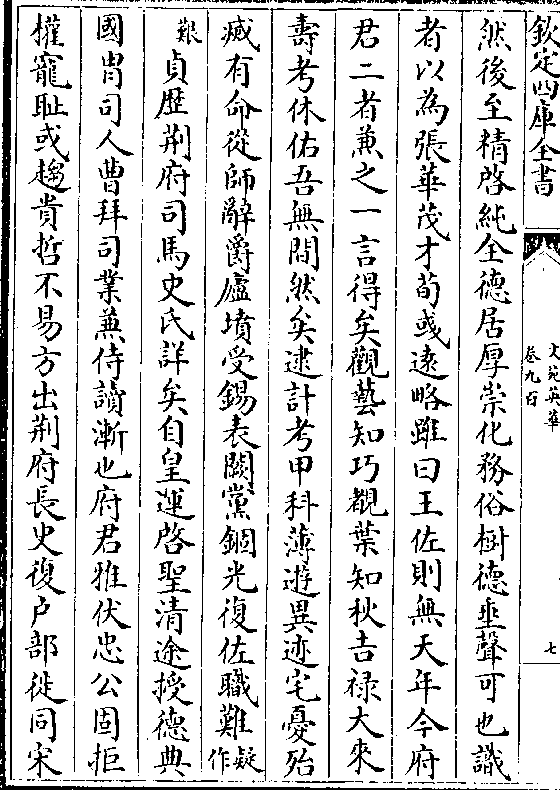 欽定四庫全書
文苑英華
卷九百
七
然後至精啓純全德居厚崇化務俗樹德垂聲可也識
者以為張華茂才荀彧遠略雖曰王佐則無天年今府
君二者兼之一言得矣觀藝知巧覩葉知秋吉禄大來
壽考休佑吾無間然矣逮計考甲科薄遊異迹宅憂殆
滅有命從師辭爵廬墳受錫表闕黨錮光復佐職難疑作
艱貞歴荆府司馬史氏詳矣自皇運啓聖清途授德典
國胄司人曹拜司業兼侍讀漸也府君雅伏忠公固拒
權寵耻或趨貴哲不易方出荆府長史復户部徙同宋